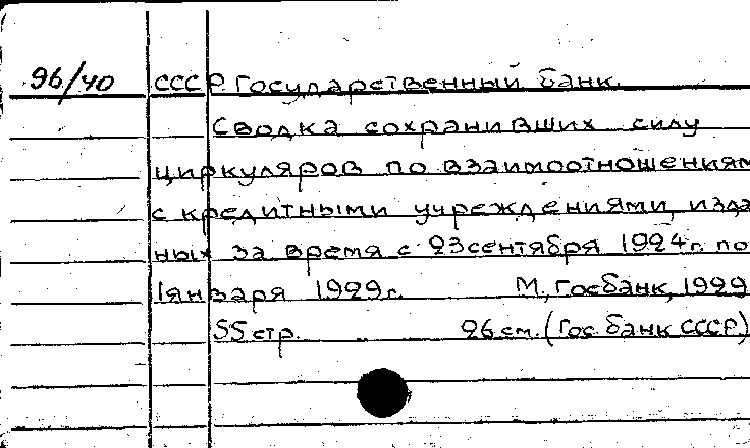 96/40 СССР. Государственный банк.
Сводка сохранивших силу
циркуляров по взаимоотношениям
с кредитными учреждениями, изда
ных за время с 23 сентября 1924 г. по
1 января 1929 г. М, Госбанк, 1929
55 стр. 26 см. (Гос. банк СССР)